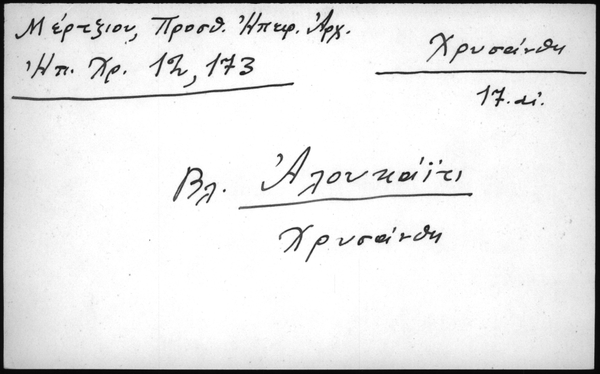 Μέρτζιου, Προσθ. Ἠπειρ. Ἀρχ.
Ἠπ. Χρ. 12, 173
Χρυσάνθη
17. αἰ.
Βλ. Ἀλουκάϊτι
Χρυσάνθη